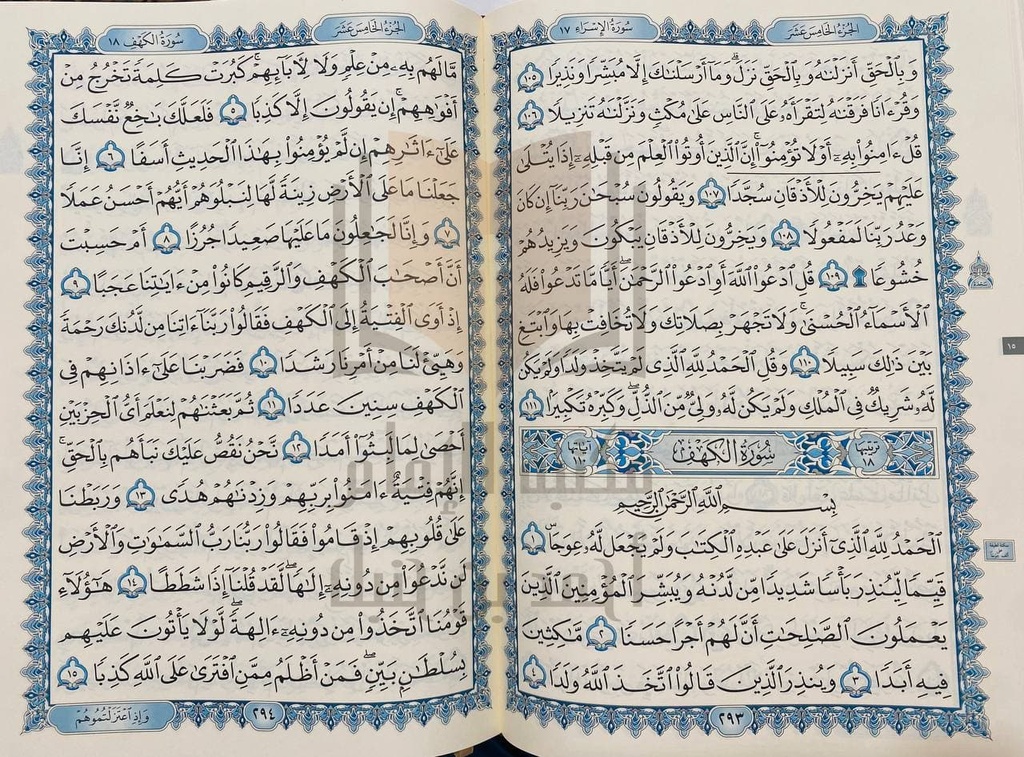 الجزء الخامس عشر
سورة الإسراء ١٧
وَبِالْحَقِّ أَنزَلْنَاهُ وَبِالْحَقِّ نَزَلَ ۗ وَمَا أَرْسَلْنَاكَ إِلَّا مُبَشِّرًا وَنَذِيرًا ١٠٥
وَقُرْآنًا فَرَقْنَاهُ لِتَقْرَأَهُ عَلَى النَّاسِ عَلَىٰ مُكْثٍ وَنَزَّلْنَاهُ تَنزِيلًا ١٠٦
قُلْ آمِنُوا بِهِ أَوْ لَا تُؤْمِنُوا ۚ إِنَّ الَّذِينَ أُوتُوا الْعِلْمَ مِن قَبْلِهِ إِذَا يُتْلَىٰ
عَلَيْهِمْ يَخِرُّونَ لِلْأَذْقَانِ سُجَّدًا ١٠٧ وَيَقُولُونَ سُبْحَانَ رَبِّنَا إِن كَانَ
وَعْدُ رَبِّنَا لَمَفْعُولًا ١٠٨ وَيَخِرُّونَ لِلْأَذْقَانِ يَبْكُونَ وَيَزِيدُهُمْ
خُشُوعًا ۩ ١٠٩ قُلِ ادْعُوا اللَّهَ أَوِ ادْعُوا الرَّحْمَٰنَ ۖ أَيًّا مَّا تَدْعُوا فَلَهُ
الْأَسْمَاءُ الْحُسْنَىٰ ۚ وَلَا تَجْهَرْ بِصَلَاتِكَ وَلَا تُخَافِتْ بِهَا وَابْتَغِ
بَيْنَ ذَٰلِكَ سَبِيلًا ١١٠ وَقُلِ الْحَمْدُ لِلَّهِ الَّذِي لَمْ يَتَّخِذْ وَلَدًا وَلَمْ يَكُن
لَّهُ شَرِيكٌ فِي الْمُلْكِ وَلَمْ يَكُن لَّهُ وَلِيٌّ مِّنَ الذُّلِّ ۖ وَكَبِّرْهُ تَكْبِيرًا ١١١
ترتيبها ١٨ سُورَةُ الكَهْفِ آياتها ١١٠
بِسْمِ اللَّهِ الرَّحْمَٰنِ الرَّحِيمِ
الْحَمْدُ لِلَّهِ الَّذِي أَنزَلَ عَلَىٰ عَبْدِهِ الْكِتَابَ وَلَمْ يَجْعَل لَّهُ عِوَجًا ١
قَيِّمًا لِّيُنذِرَ بَأْسًا شَدِيدًا مِّن لَّدُنْهُ وَيُبَشِّرَ الْمُؤْمِنِينَ الَّذِينَ
يَعْمَلُونَ الصَّالِحَاتِ أَنَّ لَهُمْ أَجْرًا حَسَنًا ٢ مَّاكِثِينَ
فِيهِ أَبَدًا ٣ وَيُنذِرَ الَّذِينَ قَالُوا اتَّخَذَ اللَّهُ وَلَدًا ٤
٢٩٣
١٥
الجزء الخامس عشر
سورة الكهف ١٨
مَّا لَهُم بِهِ مِنْ عِلْمٍ وَلَا لِآبَائِهِمْ ۚ كَبُرَتْ كَلِمَةً تَخْرُجُ مِنْ
أَفْوَاهِهِمْ ۚ إِن يَقُولُونَ إِلَّا كَذِبًا ٥ فَلَعَلَّكَ بَاخِعٌ نَّفْسَكَ
عَلَىٰ آثَارِهِمْ إِن لَّمْ يُؤْمِنُوا بِهَٰذَا الْحَدِيثِ أَسَفًا ٦ إِنَّا
جَعَلْنَا مَا عَلَى الْأَرْضِ زِينَةً لَّهَا لِنَبْلُوَهُمْ أَيُّهُمْ أَحْسَنُ عَمَلًا
٧ وَإِنَّا لَجَاعِلُونَ مَا عَلَيْهَا صَعِيدًا جُرُزًا ٨ أَمْ حَسِبْتَ
أَنَّ أَصْحَابَ الْكَهْفِ وَالرَّقِيمِ كَانُوا مِنْ آيَاتِنَا عَجَبًا ٩
إِذْ أَوَى الْفِتْيَةُ إِلَى الْكَهْفِ فَقَالُوا رَبَّنَا آتِنَا مِن لَّدُنكَ رَحْمَةً
وَهَيِّئْ لَنَا مِنْ أَمْرِنَا رَشَدًا ١٠ فَضَرَبْنَا عَلَىٰ آذَانِهِمْ فِي
الْكَهْفِ سِنِينَ عَدَدًا ١١ ثُمَّ بَعَثْنَاهُمْ لِنَعْلَمَ أَيُّ الْحِزْبَيْنِ
أَحْصَىٰ لِمَا لَبِثُوا أَمَدًا ١٢ نَّحْنُ نَقُصُّ عَلَيْكَ نَبَأَهُم بِالْحَقِّ ۚ
إِنَّهُمْ فِتْيَةٌ آمَنُوا بِرَبِّهِمْ وَزِدْنَاهُمْ هُدًى ١٣ وَرَبَطْنَا
عَلَىٰ قُلُوبِهِمْ إِذْ قَامُوا فَقَالُوا رَبُّنَا رَبُّ السَّمَاوَاتِ وَالْأَرْضِ
لَن نَّدْعُوَ مِن دُونِهِ إِلَٰهًا ۖ لَّقَدْ قُلْنَا إِذًا شَطَطًا ١٤ هَٰؤُلَاءِ
قَوْمُنَا اتَّخَذُوا مِن دُونِهِ آلِهَةً ۖ لَّوْلَا يَأْتُونَ عَلَيْهِم
بِسُلْطَانٍ بَيِّنٍ ۖ فَمَنْ أَظْلَمُ مِمَّنِ افْتَرَىٰ عَلَى اللَّهِ كَذِبًا ١٥
٢٩٤
وَإِذِ اعْتَزَلْتُمُوهُمْ
مكتبة الإمام
أحمد بن حنبل